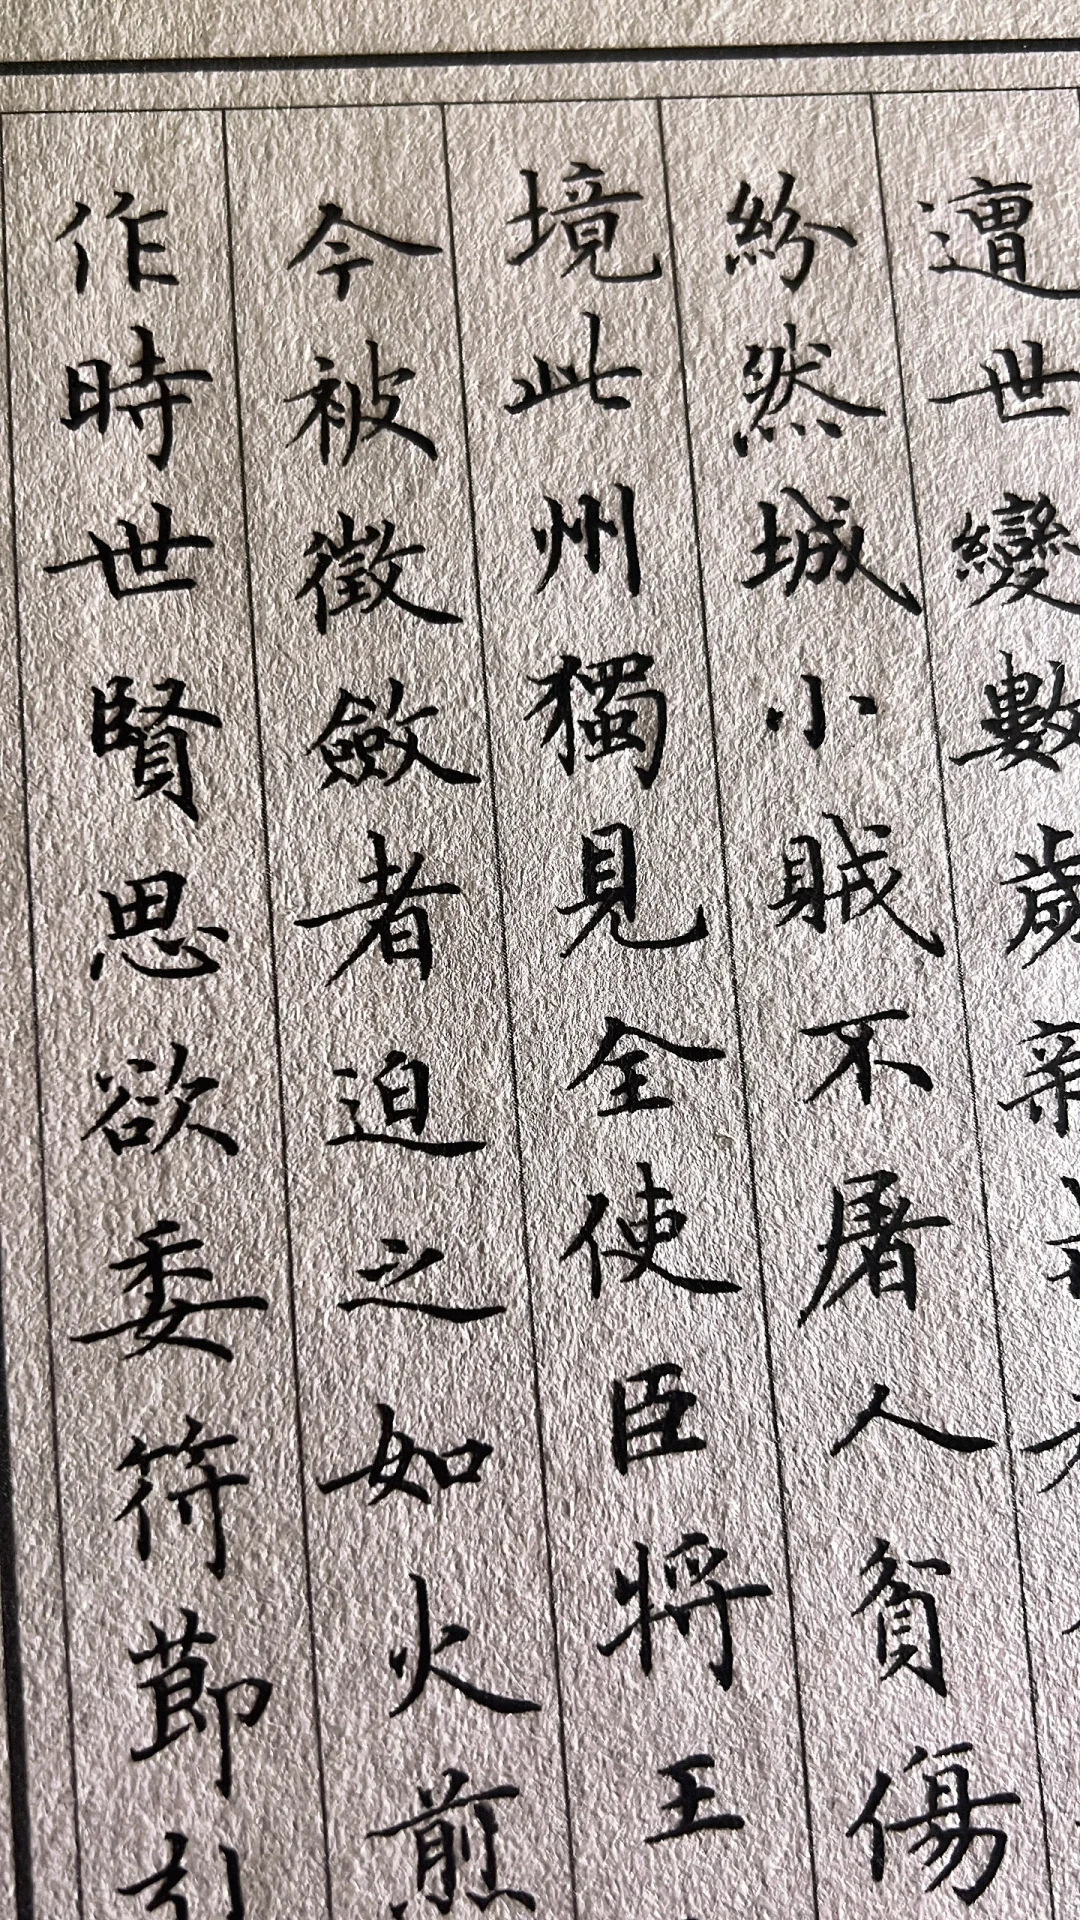 遭世變數歲親
紛然城小賊不屠人貧傷
境此州獨見全使臣將王
今被徵斂者迫之如火煎
作時世賢思欲委符節引